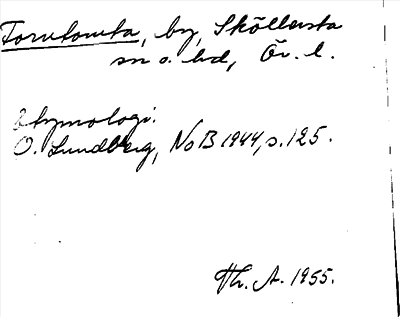 Torntomta, by, Sköllersta
sn o. hd, Ör. l.
Etymologi:
O. Lundberg, NoB 1944, s. 125.
Hr. A. 1955.